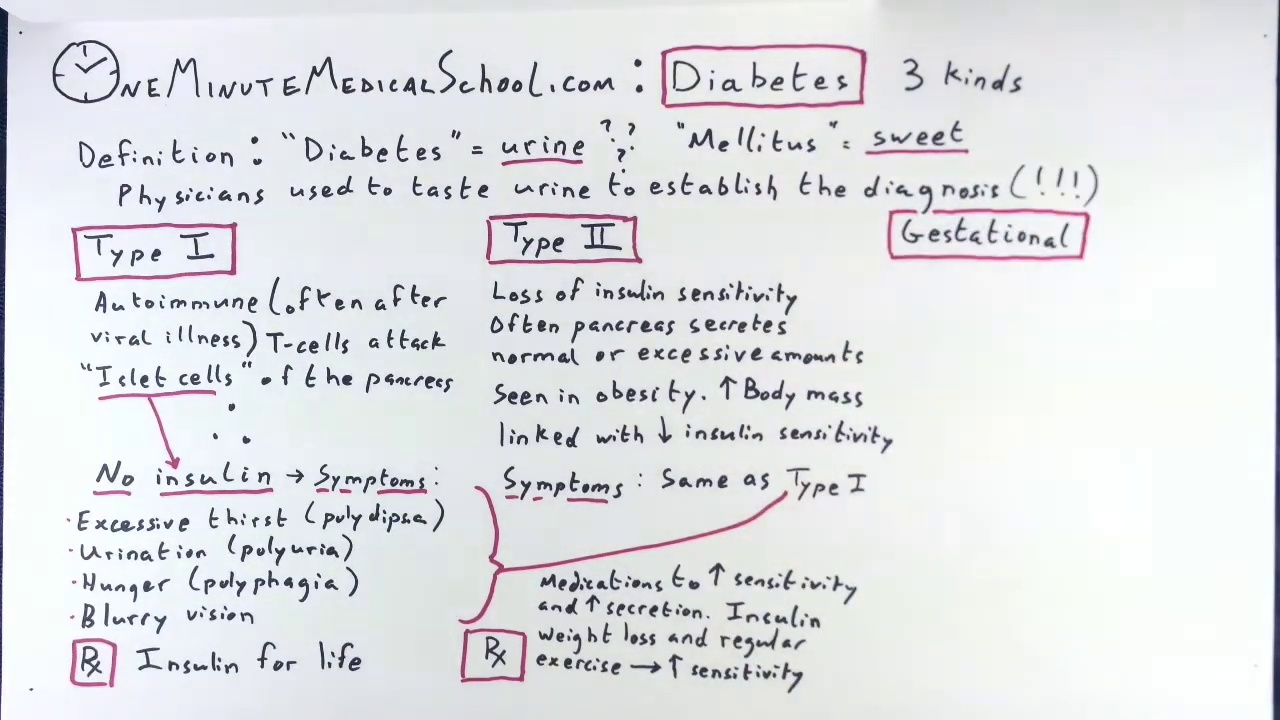 OneMinuteMedicalSchool.com : Diabetes 3 kinds
Definition : "Diabetes" = urine ??? "Mellitus" = sweet
Physicians used to taste urine to establish the diagnosis (!!!)
Type I
Autoimmune (often after
viral illness) T-cells attack
"Islet cells" of the pancreas
∴
No insulin → Symptoms :
· Excessive thirst (polydipsa)
· Urination (polyuria)
· Hunger (polyphagia)
· Blurry vision
Rx Insulin for life
Type II
Loss of insulin sensitivity
Often pancreas secretes
normal or excessive amounts
Seen in obesity. ↑ Body mass
linked with ↓ insulin sensitivity
Symptoms : Same as Type I
Rx
Medications to ↑ sensitivity
and ↑ secretion. Insulin
weight loss and regular
exercise → ↑ sensitivity
Gestational